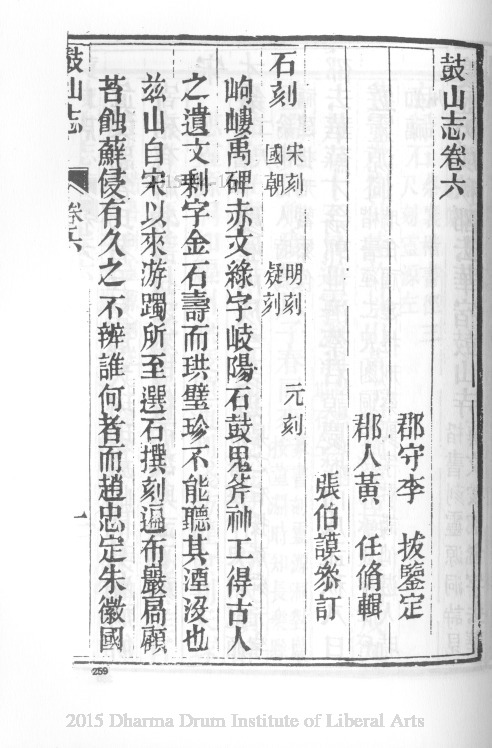 鼓山志卷六
郡守李 拔鑒定
郡人黃 任脩輯
張伯謨叅訂
石刻 宋刻 明刻 元刻
國朝 疑刻
岣嶁禹碑赤文綠字岐陽石鼓鬼斧神工得古人
之遺文剩字金石壽而珙璧珍不能聽其湮沒也
兹山自宋以來游躅所至選石撰刻遍布巖扃顧
苔蝕蘚侵有久之不辨誰何者而趙忠定朱徽國
鼓山志 卷六 一
259
2015 Dharma Drum Institute of Liberal Arts